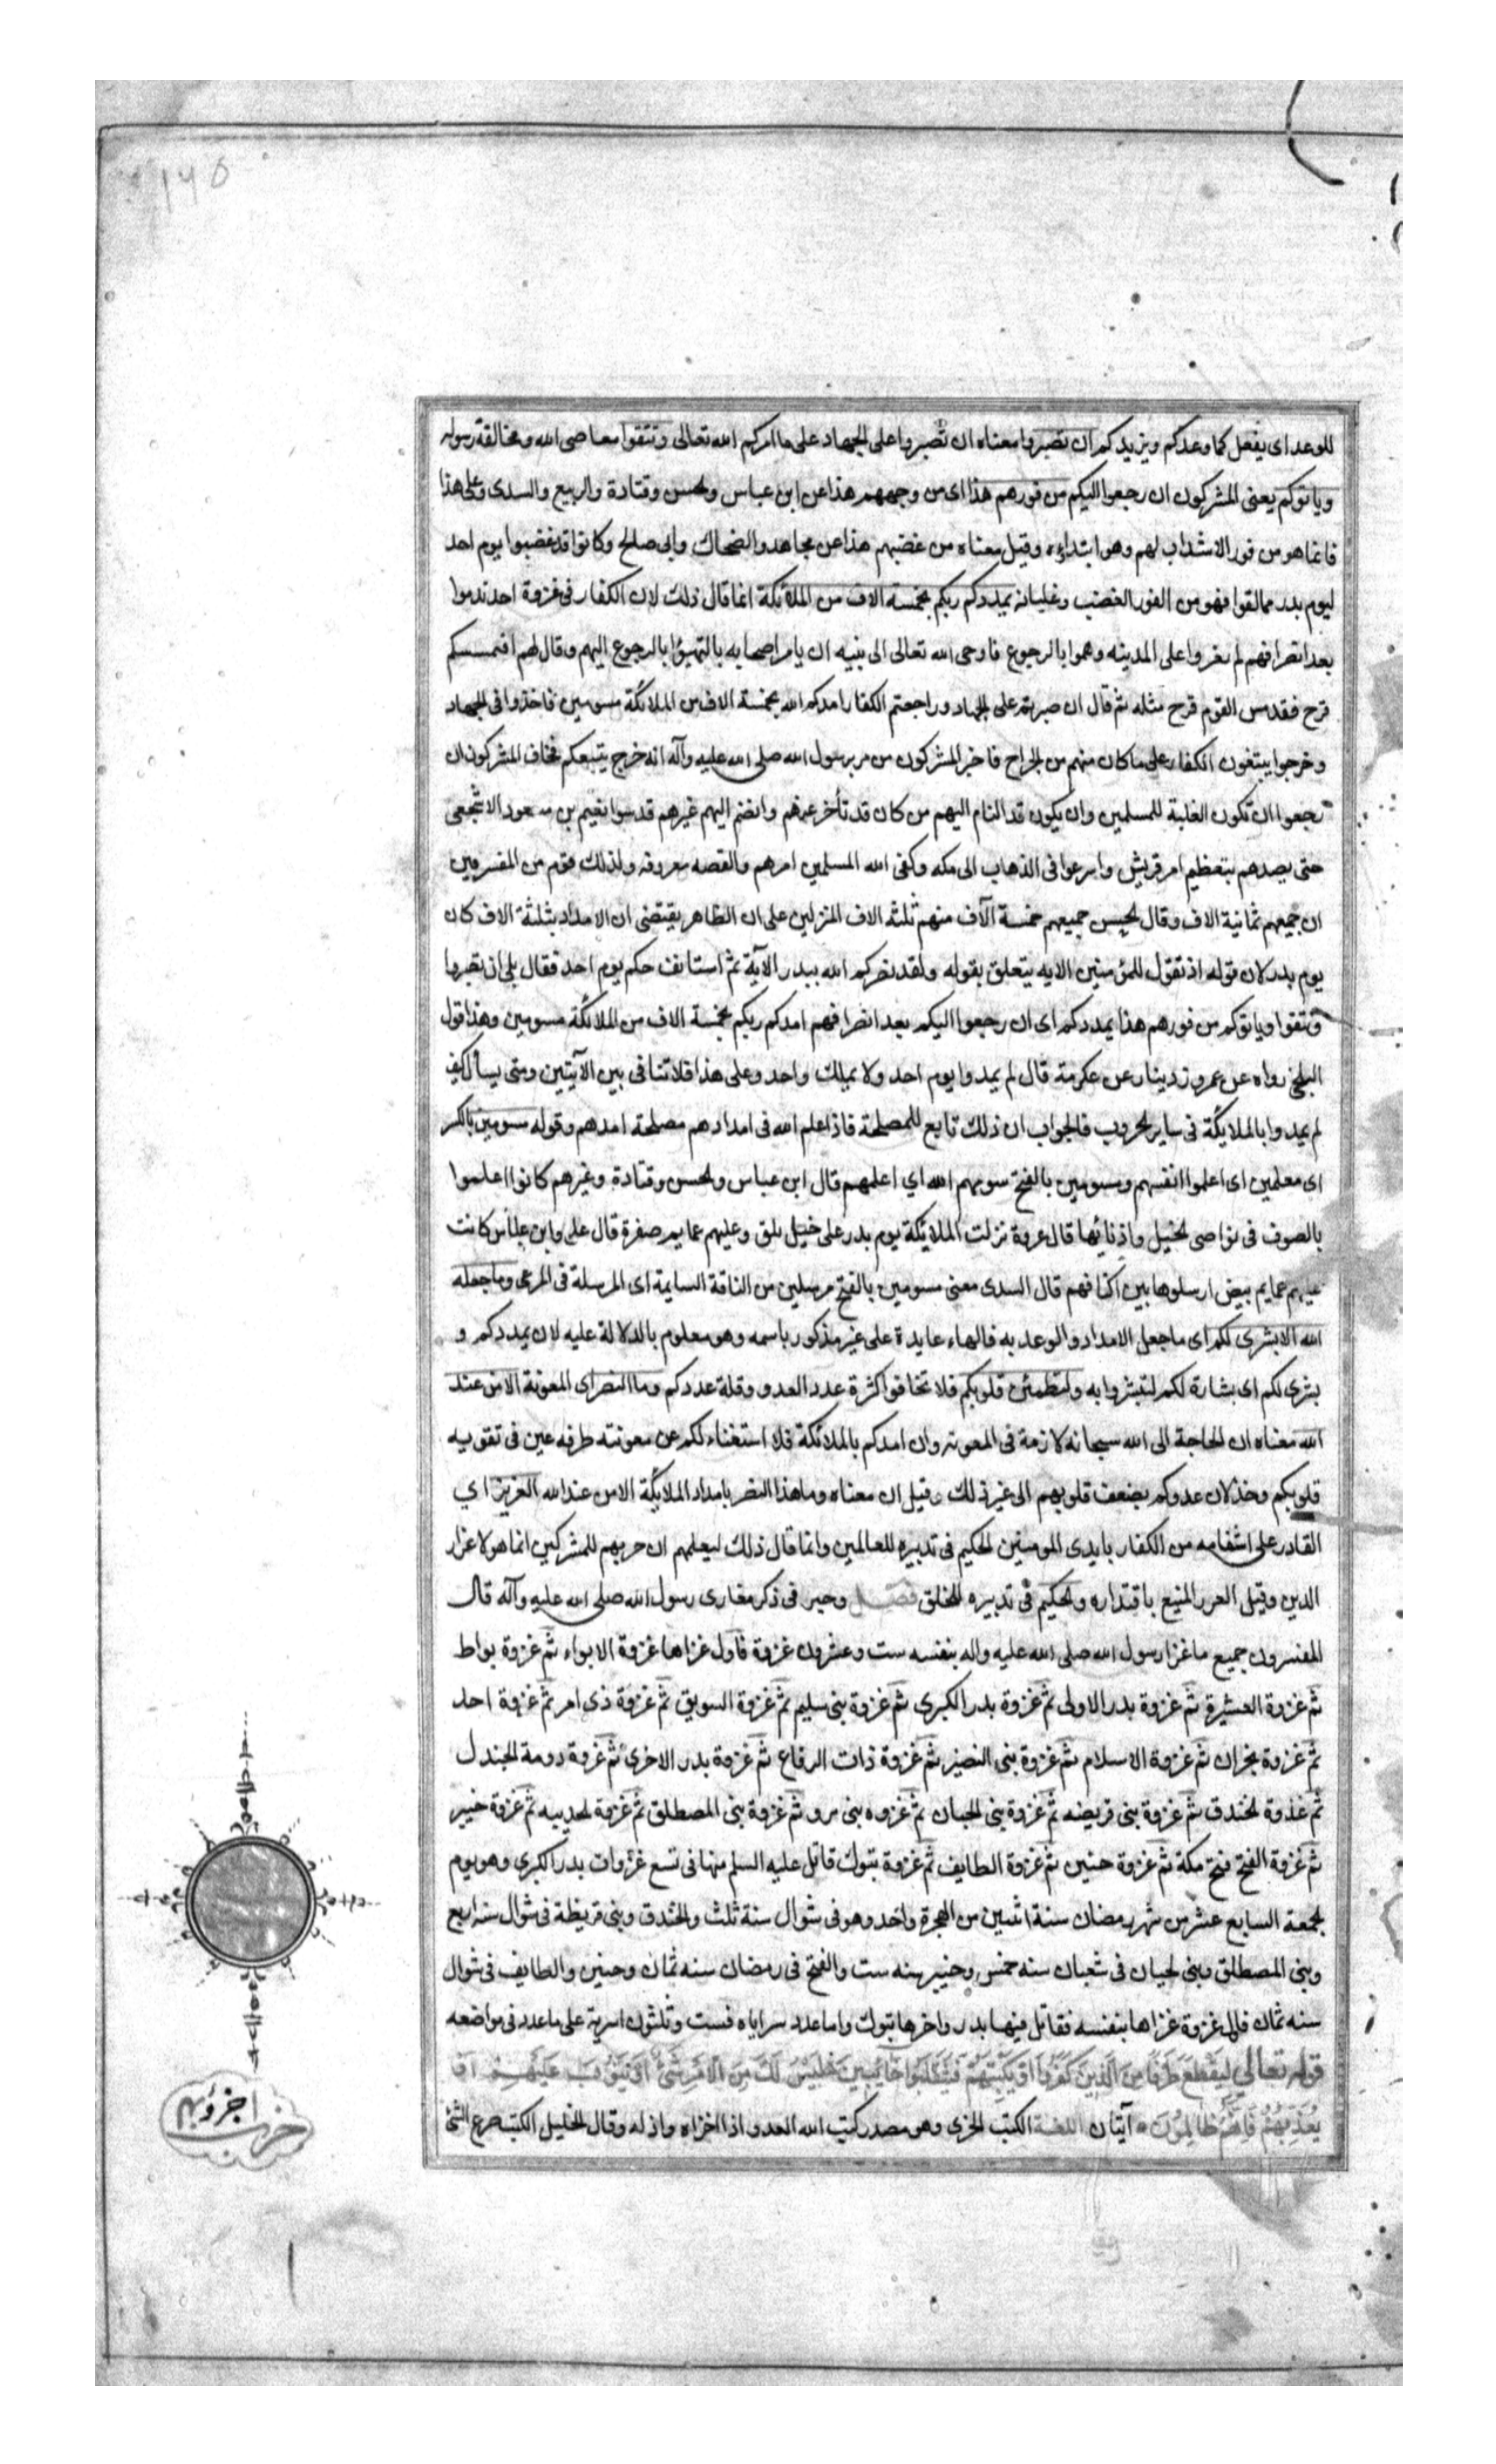 ١٩٥
للوعد اى يفعل كما وعدكم ويزيدكم ان تصبروا معناه ان تصبروا على الجهاد على ما امركم الله تعالى وتتقوا معاصى الله ومخالفة رسوله
وياتوكم يعنى المشركون ان رجعوا اليكم من فورهم هذا اى من وجههم هذا عن ابن عباس والحسن وقتادة والربيع والسدى وعلى هذا
فانما هو من فور الابتداء لهم وهو ابتداؤه وقيل معناه من غضبهم هذا عن مجاهد والضحاك وابى صالح وكانوا قد غضبوا يوم احد
ليوم بدر مما لقوا فهو من الفور الغضب وغليانه يمددكم ربكم بخمسة الاف من الملائكة انما قال ذلك لان الكفار فى غزوة احد ندموا
بعد انصرافهم لم يغروا على المدينه وهموا بالرجوع فاوحى الله تعالى الى نبيه ان يامر اصحابه بالتهيؤ بالرجوع اليهم وقال لهم ان يمسسكم
قرح فقد مس القوم قرح مثله ثم قال ان صبرتم على الجهاد وراجعتم الكفار امدكم الله بخمسة الاف من الملائكة مسومين فاخذوا فى الجهاد
وخرجوا يبتغون الكفار على ما كان منهم من الجراح فاخبر المشركون من مر برسول الله صلى الله عليه وآله انه خرج يتبعكم فخاف المشركون ان
رجعوا ان تكون الغلبة للمسلمين وان يكون قد التام اليهم من كان قد تأخر عنهم وانضم اليهم غيرهم فدسوا نعيم بن مسعود الاشجعى
حتى يصدهم بتعظيم امر قريش واسرعوا فى الذهاب الى مكه وكفى الله المسلمين امرهم والقصه معروفه ولذلك قوم من المفسرين
ان جميعهم ثمانية الاف وقال الحسن جميعهم خمسة آلاف منهم ثلثه الاف المنزلين على ان الظاهر يقتضى ان الامداد بثلثة الاف كان
يوم بدر لان قوله اذ تقول للمؤمنين الايه يتعلق بقوله ولقد نصركم الله ببدر الآية ثم استانف حكم يوم احد فقال بلى ان تصبروا
وتتقوا وياتوكم من فورهم هذا يمددكم اى ان رجعوا اليكم بعد انصرافهم امدكم ربكم بخمسة الاف من الملائكة مسومين وهذا قول
البلخى رواه عن عمرو بن دينار عن عكرمة قال لم يمدوا يوم احد ولا بملك واحد وعلى هذا فلا تنافى بين الآيتين ومتى يسأل كيف
لم يمدوا بالملائكة فى ساير الحروب فالجواب ان ذلك تابع للمصلحة فاذا علم الله فى امدادهم مصلحة امدهم وقوله مسومين بالكسر
اى معلمين اى اعلموا انفسهم ومسومين بالفتح سومهم الله اي اعلمهم قال ابن عباس والحسن وقتادة وغيرهم كانوا اعلموا
بالصوف فى نواصى الخيل واذنابها قال عروة نزلت الملائكة يوم بدر على خيل بلق وعليهم عمايم صفرة قال على وابن عباس كانت
عليهم عمايم بيض ارسلوها بين اكتافهم قال السدى معنى مسومين بالفتح مرسلين من الناقة السايمة اى المرسلة فى المرعى وما جعله
الله الا بشرى لكم اى ما جعل الامداد والوعد به فالهاء عايدة على غير مذكور باسمه وهو معلوم بالدلالة عليه لان يمددكم و
بشرى لكم اى بشارة لكم لتبشروا به ولتطمئن قلوبكم فلا تخافوا كثرة عدد العدو وقلة عددكم وما النصر اى المعونة الا من عند
الله معناه ان الحاجة الى الله سبحانه لازمة فى المعونه وان امدكم بالملائكة فلا استغناء لكم عن معونته طرفه عين فى تقويه
قلوبكم وخذلان عدوكم بضعف قلوبهم الى غير ذلك وقيل ان معناه وما هذا النصر بامداد الملائكة الا من عند الله العزيز اي
القادر على انتقامه من الكفار بايدى المومنين الحكيم فى تدبيره للعالمين وانما قال ذلك ليعلمهم ان حربهم للمشركين انما هو لاعزاز
الدين وقيل العزيز المنيع باقتداره والحكيم فى تدبيره للخلق فصــل وجيز فى ذكر مغازى رسول الله صلى الله عليه وآله قال
المفسرون جميع ما غزا رسول الله صلى الله عليه واله بنفسه ست وعشرون غزوة فاول غزاها غزوة الابواء ثم غزوة بواط
ثم غزوة العشيرة ثم غزوة بدر الاولى ثم غزوة بدر الكبرى ثم غزوة بنى سليم ثم غزوة السويق ثم غزوة ذى امر ثم غزوة احد
ثم غزوة نجران ثم غزوة الاسلام ثم غزوة بنى النضير ثم غزوة ذات الرقاع ثم غزوة بدر الاخرى ثم غزوة دومة الجندل
ثم غزوة الخندق ثم غزوة بنى قريضه ثم غزوة بنى الحيان ثم غزوه بنى ثم غزوة بنى المصطلق ثم غزوة الحديبيه ثم غزوة خيبر
ثم غزوة الفتح فتح مكة ثم غزوة حنين ثم غزوة الطايف ثم غزوة تبوك قاتل عليه السلم منها فى تسع غزوات بدر الكبرى وهو يوم
الجمعة السابع عشر من شهر رمضان سنة اثنين من الهجرة واحد وهو فى شوال سنة ثلث والخندق وبنى قريظة فى شوال سنه اربع
وبنى المصطلق وبنى لحيان فى شعبان سنه خمس وخيبر سنه ست والفتح فى رمضان سنه ثمان وحنين والطايف فى شوال
سنه ثمان فاول غزوة غزاها بنفسه فقاتل فيها بدر واخرها تبوك واما عدد سراياه فست وثلثون سرية على ما عدد فى مواضعه
قوله تعالى ليقطع طرفا من الذين كفروا او يكبتهم فينقلبوا خائبين ليس لك من الامر شئ او يتوب عليهم او
يعذبهم فانهم ظالمون آيتان اللغة الكبت الخزى وهو مصدر كبت الله العدو اذا اخزاه واذله وقال الخليل الكبت صرع الشئ
حزب